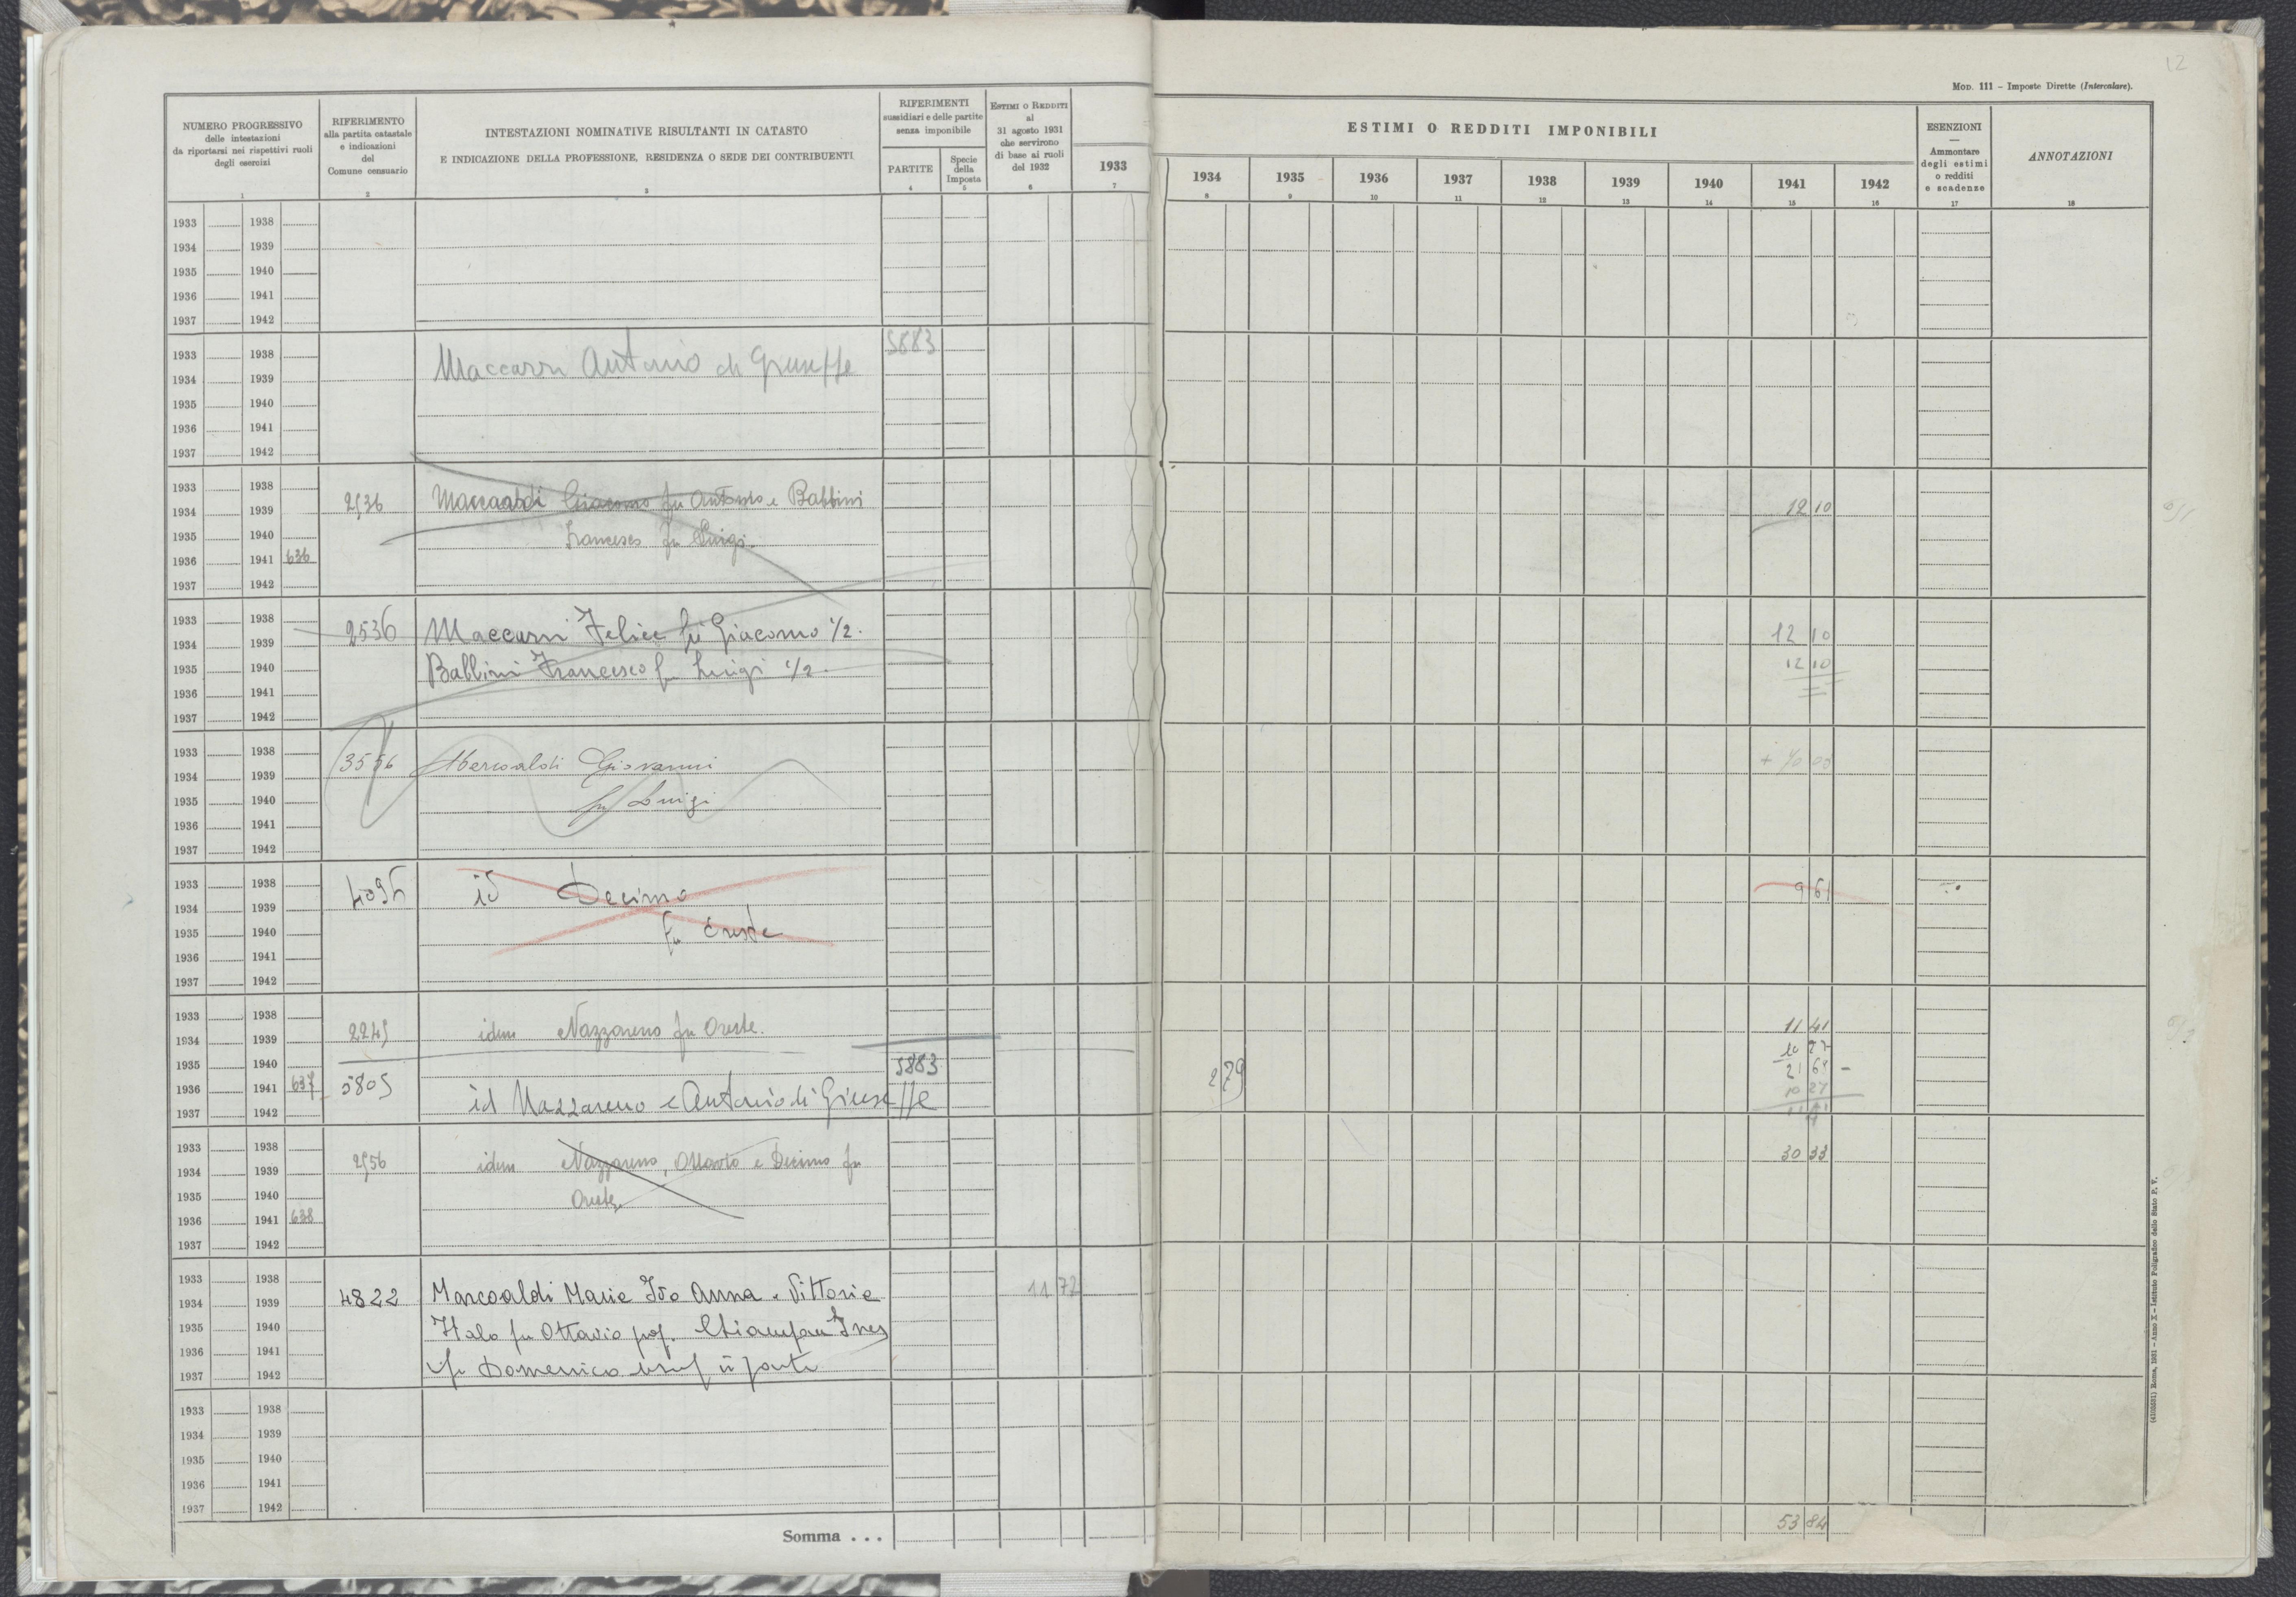 12
MOD. 111 – Imposte Dirette (Intercalare).
NUMERO PROGRESSIVO
delle intestazioni
da riportarsi nei rispettivi ruoli
degli esercizi
1
RIFERIMENTO
alla partita catastale
e indicazioni
del
Comune censuario
2
INTESTAZIONI NOMINATIVE RISULTANTI IN CATASTO
E INDICAZIONE DELLA PROFESSIONE, RESIDENZA O SEDE DEI CONTRIBUENTI
3
RIFERIMENTI
sussidiari e delle partite
senza imponibile
PARTITE
4
Specie
della
Imposta
5
ESTIMI O REDDITI
al
31 agosto 1931
che servirono
di base ai ruoli
del 1932
6
1933
7
ESTIMI O REDDITI IMPONIBILI
1934 1935 1936 1937 1938 1939 1940 1941 1942
8 9 10 11 12 13 14 15 16
ESENZIONI
Ammontare
degli estimi
o redditi
e scadenze
17
ANNOTAZIONI
18
1933 1938
1934 1939
1935 1940
1936 1941
1937 1942
5883
1933 1938
1934 1939 Antonio di Giuseppe
1935 1940
1936 1941
1937 1942
1933 1938
1934 1939 2536 Giacomo fu Antonio e Babbini 12 10
1935 1940 Francesco fu Luigi
1936 1941 636
1937 1942
1933 1938 2536 Felice fu Giacomo 1/2. 12 10
1934 1939
1935 1940 Babbini Francesco fu Luigi 1/2. 12 10
1936 1941
1937 1942
1933 1938
1934 1939 Giovanni
1935 1940 fu Luigi
1936 1941
1937 1942
1933 1938 4096 id Decimo 9 61
1934 1939
1935 1940 fu Oreste
1936 1941
1937 1942
1933 1938
1934 1939 2245 idem Nazzareno fu Oreste. 11 41
1935 1940 5883
1936 1941 637 5805 id Nazzareno e Antonio di Giuseppe 2 79
1937 1942
1933 1938
1934 1939 2556 idem Nazzareno, Ottavio e Decimo fu 30 33
1935 1940 Oreste
1936 1941 638
1937 1942
1933 1938
1934 1939 4822 Marcoaldi Maria Ida Anna Vittoria 11 72
1935 1940 Italo fu Ottavio Ines
1936 1941
1937 1942 fu Domenico usuf
1933 1938
1934 1939
1935 1940
1936 1941
1937 1942
Somma . . . 53 84
(4103531) Roma, 1931 – Anno X – Istituto Poligrafico dello Stato P. V.